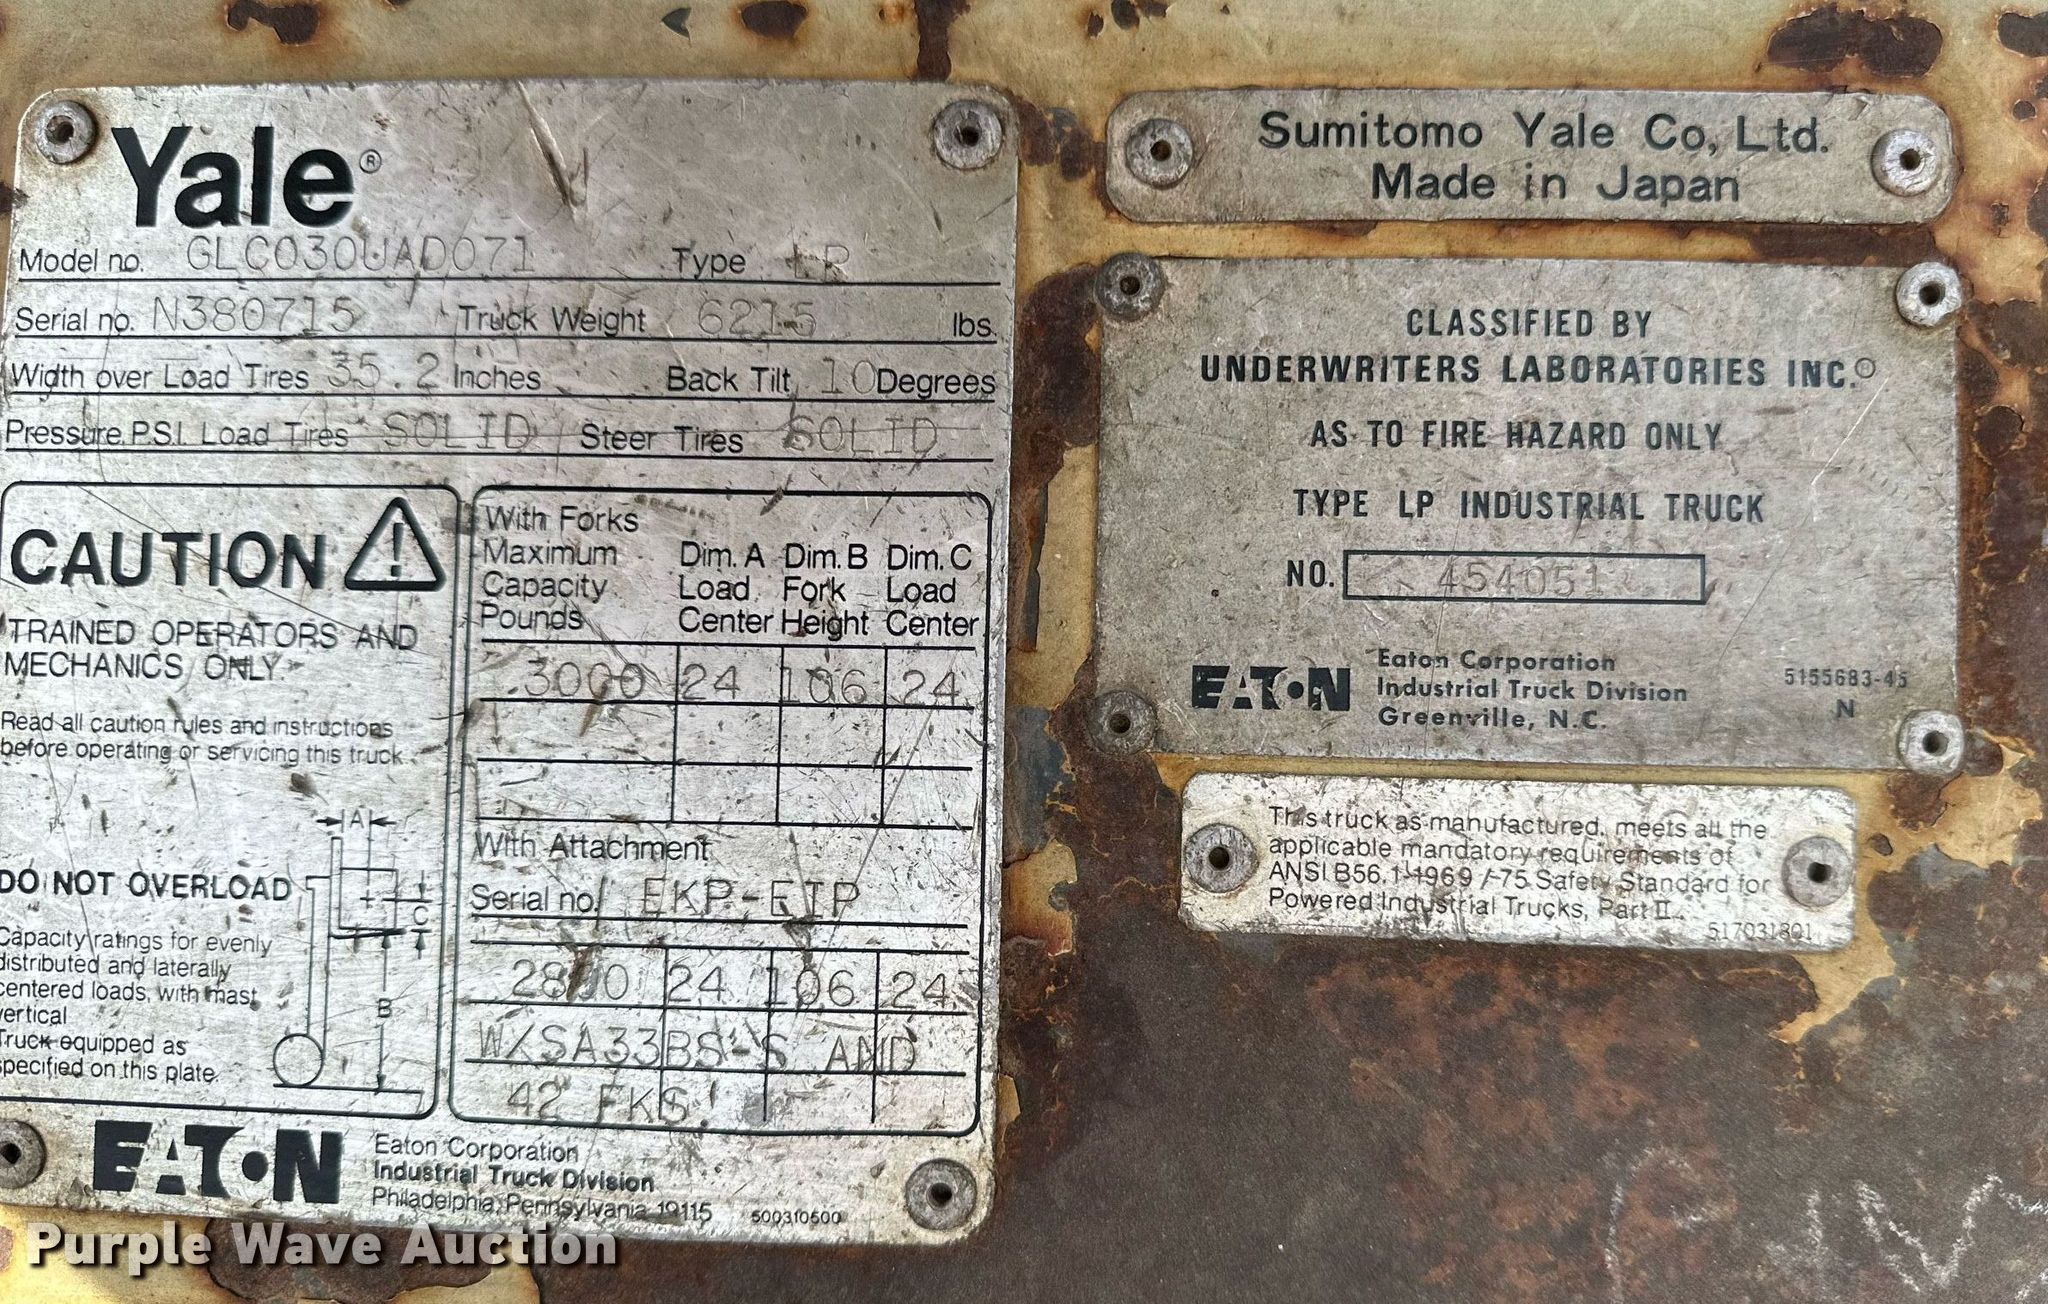 Yale®
Model no. GLC030UAD071 Type LP
Serial no. N380715 Truck Weight 6215 lbs.
Width over Load Tires 35.2 Inches Back Tilt 10 Degrees
Pressure P.S.I. Load Tires SOLID Steer Tires SOLID
CAUTION
TRAINED OPERATORS AND
MECHANICS ONLY.
Read all caution rules and instructions
before operating or servicing this truck.
A
C
B
DO NOT OVERLOAD
Capacity ratings for evenly
distributed and laterally
centered loads, with mast
vertical
Truck equipped as
specified on this plate.
With Forks
Maximum Dim. A Dim. B Dim. C
Capacity Load Fork Load
Pounds Center Height Center
3000 24 106 24
With Attachment
Serial no. EKP-EIP
24 106 24
W/SA33BS-S AND
42 FKS.
EATON
Eaton Corporation
Industrial Truck Division
Philadelphia, Pennsylvania 19115 500310500
Sumitomo Yale Co, Ltd.
Made in Japan
CLASSIFIED BY
UNDERWRITERS LABORATORIES INC.®
AS TO FIRE HAZARD ONLY
TYPE LP INDUSTRIAL TRUCK
NO. 454051
EATON
Eaton Corporation
Industrial Truck Division
Greenville, N.C.
5155683-45
N
This truck as manufactured, meets all the
applicable mandatory requirements of
ANSI B56.1-1969/-75 Safety Standard for
Powered Industrial Trucks, Part II.
517031801
Purple Wave Auction